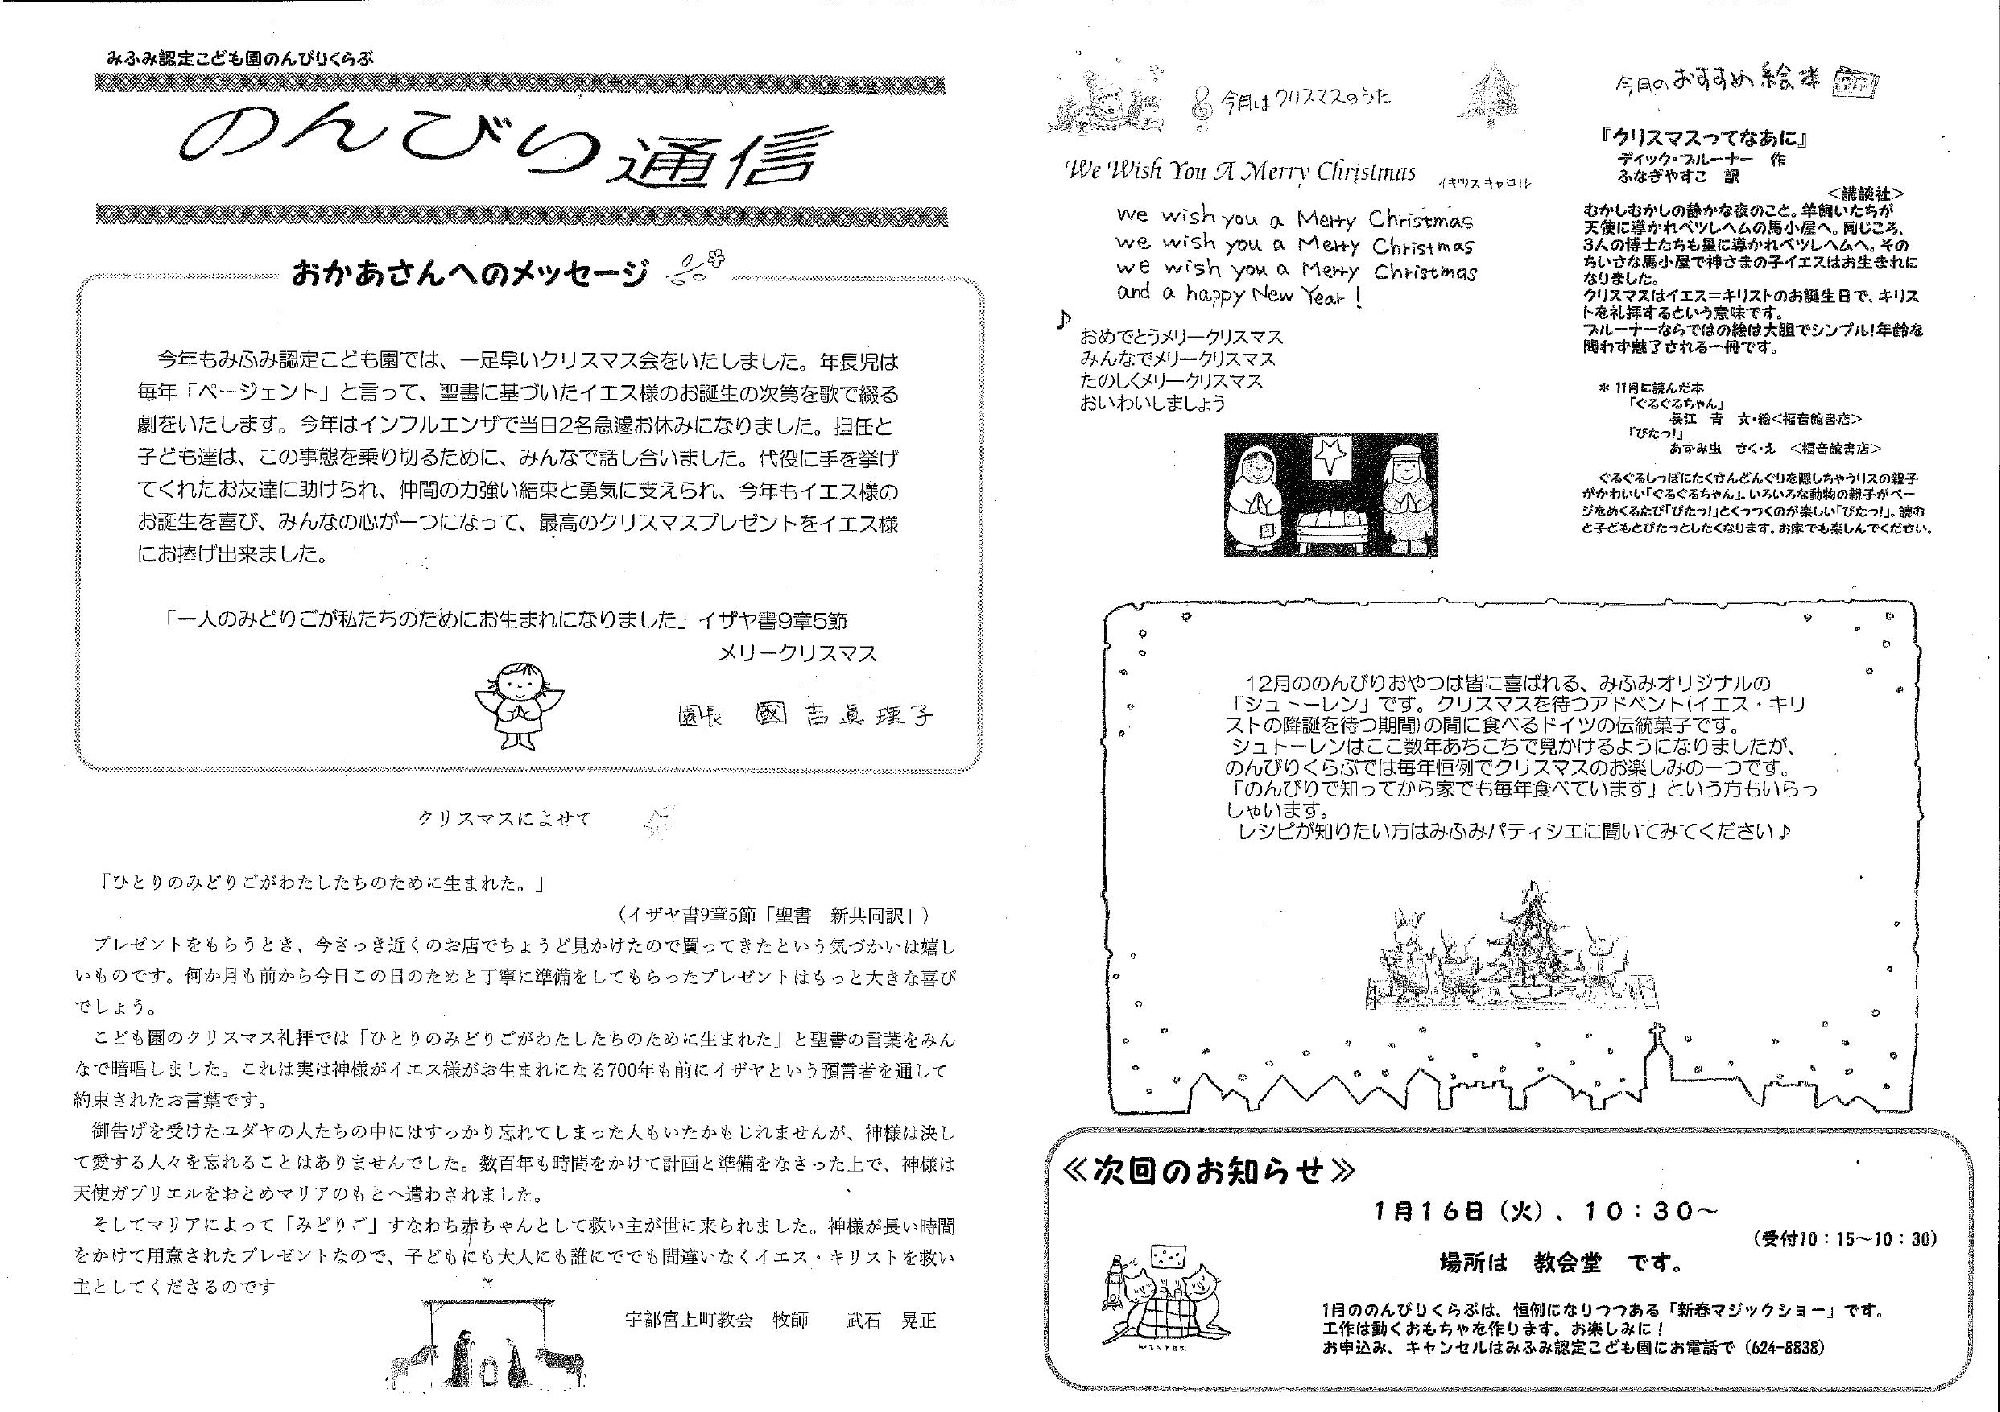 みふみ認定こども園のんびりくらぶ
のんびり通信
おかあさんへのメッセージ
今年もみふみ認定こども園では、一足早いクリスマス会をいたしました。年長児は
毎年「ページェント」と言って、聖書に基づいたイエス様のお誕生の次第を歌で綴る
劇をいたします。今年はインフルエンザで当日2名急遽お休みになりました。担任と
子ども達は、この事態を乗り切るために、みんなで話し合いました。代役に手を挙げ
てくれたお友達に助けられ、仲間の力強い結束と勇気に支えられ、今年もイエス様の
お誕生を喜び、みんなの心が一つになって、最高のクリスマスプレゼントをイエス様
にお捧げ出来ました。
「一人のみどりごが私たちのためにお生まれになりました」イザヤ書9章5節
メリークリスマス
園長 國吉眞理子
クリスマスによせて
「ひとりのみどりごがわたしたちのために生まれた。」
（イザヤ書9章5節「聖書 新共同訳」）
プレゼントをもらうとき、今さっき近くのお店でちょうど見かけたので買ってきたという気づかいは嬉し
いものです。何か月も前から今日この日のためと丁寧に準備をしてもらったプレゼントはもっと大きな喜び
でしょう。
こども園のクリスマス礼拝では「ひとりのみどりごがわたしたちのために生まれた」と聖書の言葉をみん
なで暗唱しました。これは実は神様がイエス様がお生まれになる700年も前にイザヤという預言者を通して
約束されたお言葉です。
御告げを受けたユダヤの人たちの中にはすっかり忘れてしまった人もいたかもしれませんが、神様は決し
て愛する人々を忘れることはありませんでした。数百年も時間をかけて計画と準備をなさった上で、神様は
天使ガブリエルをおとめマリアのもとへ遣わされました。
そしてマリアによって「みどりご」すなわち赤ちゃんとして救い主が世に来られました。神様が長い時間
をかけて用意されたプレゼントなので、子どもにも大人にも誰にででも間違いなくイエス・キリストを救い
主としてくださるのです
宇都宮上町教会 牧師 武石 晃正
今月はクリスマスのうた
We Wish You A Merry Christmas イギリスキャロル
we wish you a Merry Christmas
we wish you a Merry Christmas
we wish you a Merry Christmas
and a happy New Year!
♪
おめでとうメリークリスマス
みんなでメリークリスマス
たのしくメリークリスマス
おいわいしましょう
今月のおすすめ絵本
『クリスマスってなあに』
ディック・ブルーナー 作
ふなざきやすこ 訳
＜講談社＞
むかしむかしの静かな夜のこと。羊飼いたちが
天使に導かれベツレヘムの馬小屋へ。同じころ、
3人の博士たちも星に導かれベツレヘムへ。その
ちいさな馬小屋で神さまの子イエスはお生まれに
なりました。
クリスマスはイエス＝キリストのお誕生日で、キリス
トを礼拝するという意味です。
ブルーナーならではの絵は大胆でシンプル！年齢を
問わず魅了される一冊です。
＊11月に読んだ本
「ぐるぐるちゃん」
長江 青 文・絵＜福音館書店＞
「ぴたっ！」
あずみ虫 さく・え ＜福音館書店＞
ぐるぐるしっぽにたくさんどんぐりを隠しちゃうリスの親子
がかわいい「ぐるぐるちゃん」。いろいろな動物の親子がペー
ジをめくるたび「ぴたっ！」とくっつくのが楽しい「ぴたっ！」。読む
と子どもとぴたっとしたくなります。お家でも楽しんでください。
12月ののんびりおやつは皆に喜ばれる、みふみオリジナルの
「シュトーレン」です。クリスマスを待つアドベント(イエス・キリ
ストの降誕を待つ期間)の間に食べるドイツの伝統菓子です。
シュトーレンはここ数年あちこちで見かけるようになりましたが、
のんびりくらぶでは毎年恒例でクリスマスのお楽しみの一つです。
「のんびりで知ってから家でも毎年食べています」という方もいらっ
しゃいます。
レシピが知りたい方はみふみパティシエに聞いてみてください♪
≪次回のお知らせ≫
1月16日（火）、10：30～
（受付10：15～10：30）
場所は 教会堂 です。
1月ののんびりくらぶは、恒例になりつつある「新春マジックショー」です。
工作は動くおもちゃを作ります。お楽しみに！
お申込み、キャンセルはみふみ認定こども園にお電話で（624-8838）